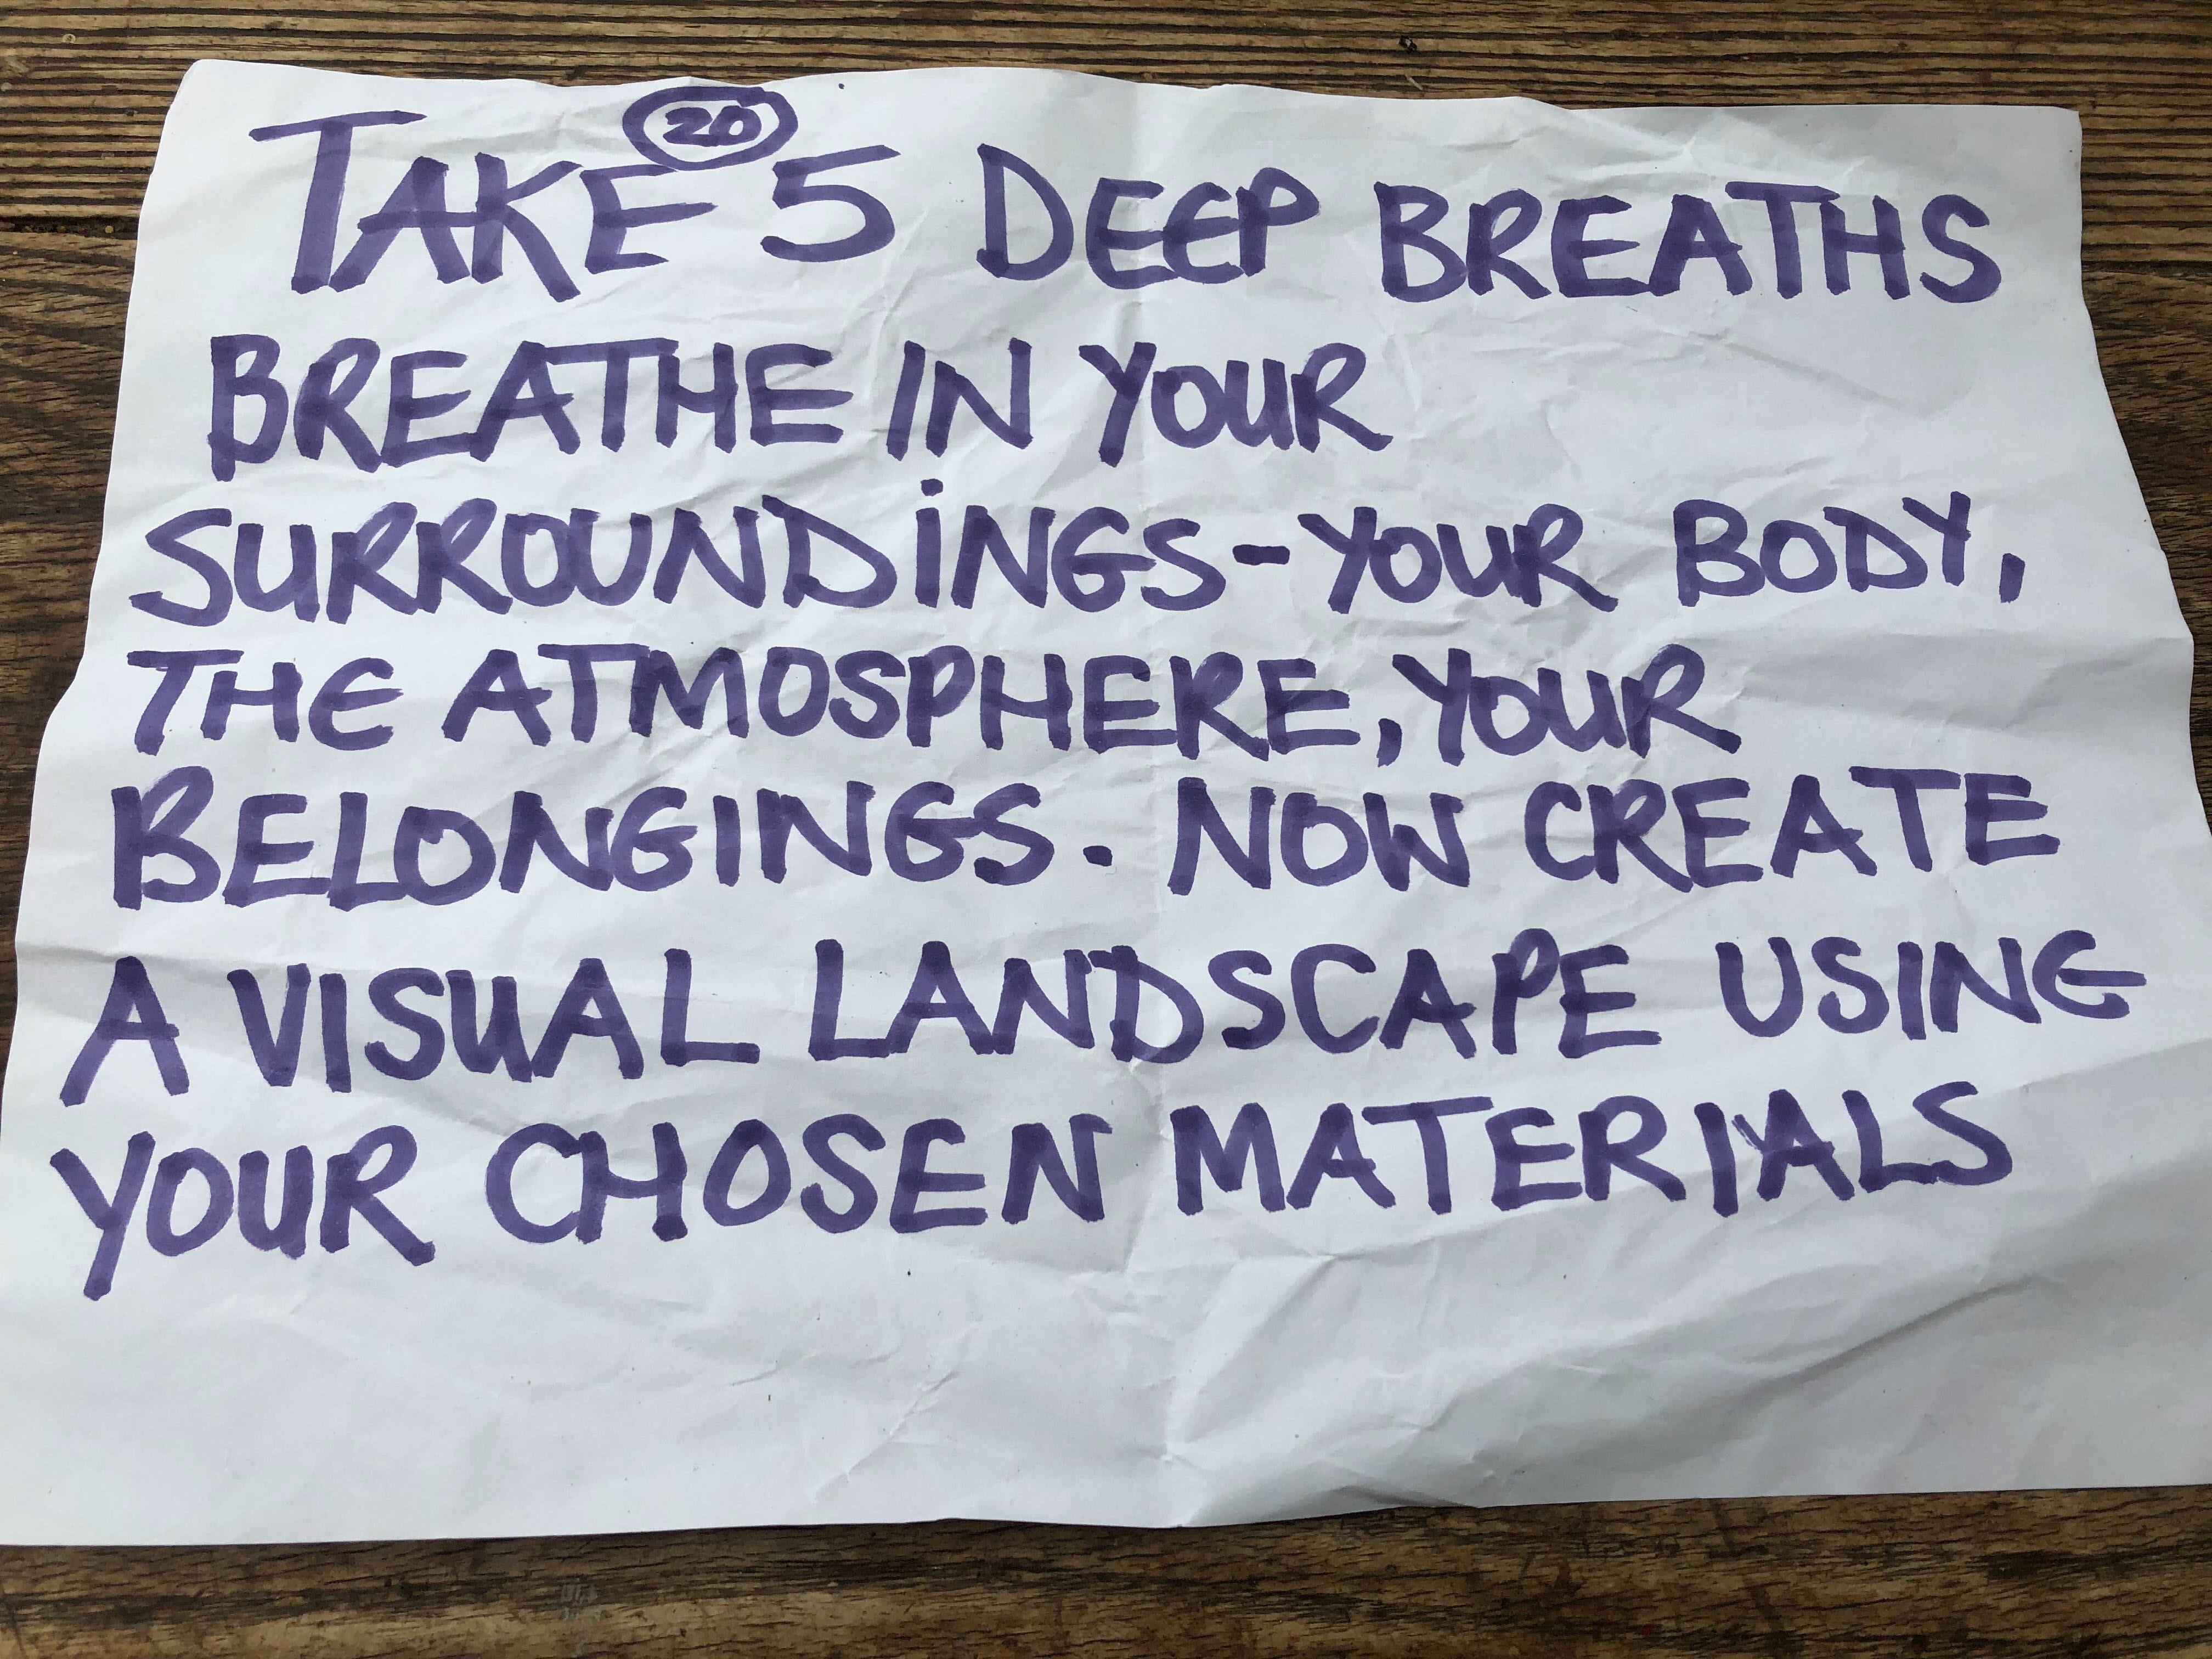 20
TAKE 5 DEEP BREATHS
BREATHE IN YOUR
SURROUNDINGS - YOUR BODY,
THE ATMOSPHERE, YOUR
BELONGINGS. NOW CREATE
A VISUAL LANDSCAPE USING
YOUR CHOSEN MATERIALS